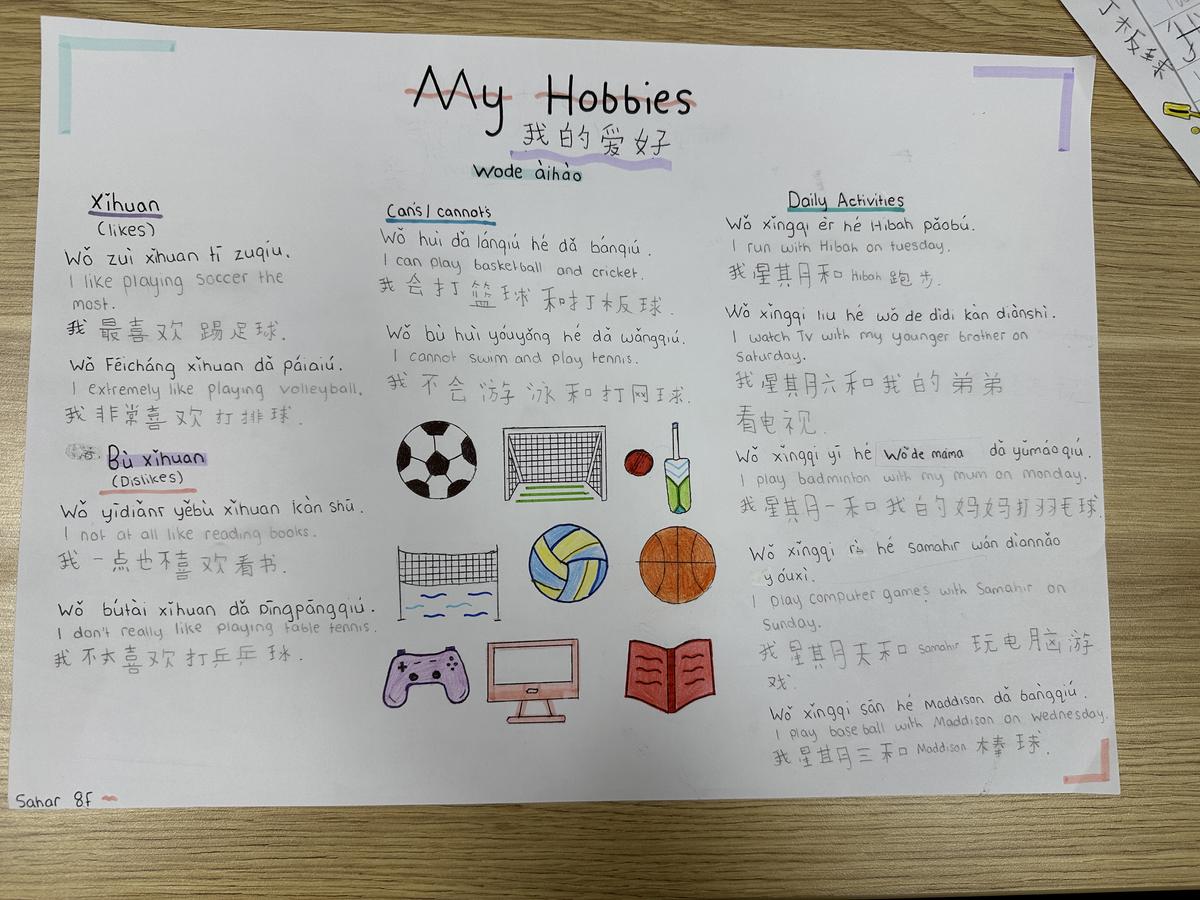 My Hobbies
我的爱好
Wode àihào
Xǐhuan
(likes)
Wǒ zuì xǐhuan tī zuqíu.
I like playing soccer the
most.
我 最喜欢 踢足球.
Wǒ Fēicháng xǐhuan dǎ páiaiú.
I extremely like playing volleyball.
我 非常喜欢 打排球.
Bù xǐhuan
(Dislikes)
Wǒ yīdiǎnr yěbù xǐhuan kàn shū.
I not at all like reading books.
我 一点也不喜欢看书.
Wǒ bútài xǐhuan dǎ Pīngpāngqiú.
I don't really like playing table tennis.
我 不太喜欢打乒乒球.
Can's / cannot's
Wǒ huì dǎ lánqiú hé dǎ bánqiú.
I can play basketball and cricket.
我 会打 篮球 和打板球.
Wǒ bù huì yóuyǒng hé dǎ wǎngqiú.
I cannot swim and play tennis.
我 不会 游泳和打网球.
Daily Activities
Wǒ xīngqi èr hé Hibah pǎobú.
I run with Hibah on tuesday.
我星其月和 Hibah 跑步.
Wǒ xīngqi liu hé wǒ de dìdi kàn diànshì.
I watch Tv with my younger brother on
Saturday.
我星其月六和我的弟弟
看电视.
Wǒ xīngqi yī hé Wǒ de māma dǎ yǔmáoqiú.
I play badminton with my mum on monday.
我星其月一和我的妈妈打羽毛球.
Wǒ xīngqi rì hé samahir wán diànnǎo
yóuxì.
I play computer games with Samahir on
Sunday.
我 星其月天和 samahir 玩电脑游
戏.
Wǒ xīngqi sān hé Maddison dǎ bàngqiú.
I play baseball with Maddison on wednesday.
我星其月三和 Maddison 棒球.
Sahar 8F
板球